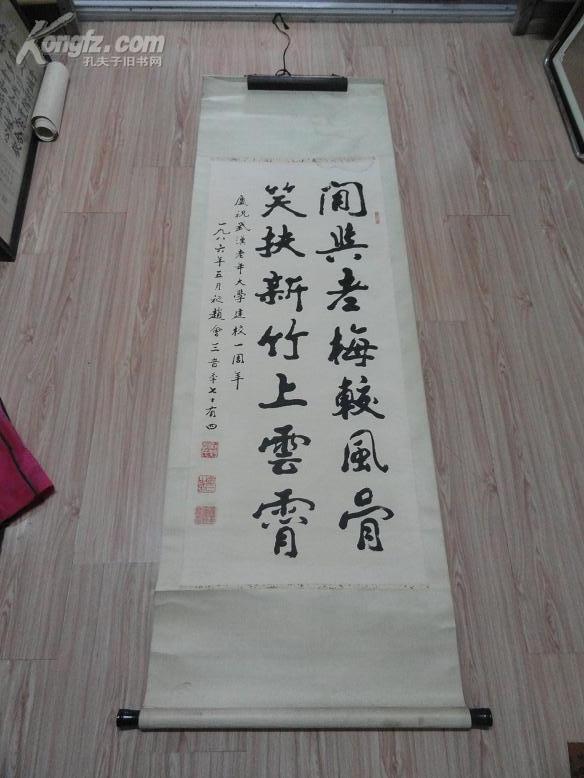 閒與老梅較風骨
笑扶新竹上雲霄
慶祝武漢老年大學建校一周年
一九八六年五月
趙會三
七十有四
Kongfz.com
孔夫子旧书网